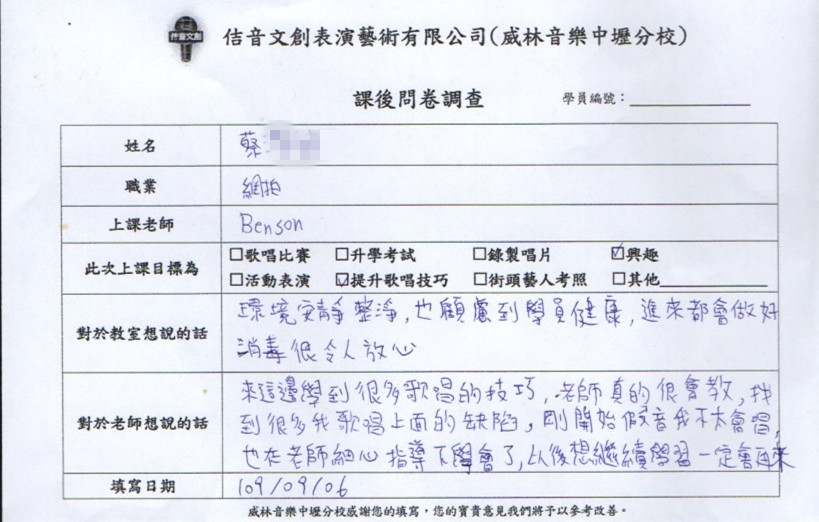 佶音文創
佶音文創表演藝術有限公司(威林音樂中壢分校)
課後問卷調查
學員編號：
姓名 蔡
職業 網拍
上課老師 Benson
此次上課目標為
□歌唱比賽 □升學考試 □錄製唱片 ☑興趣
□活動表演 ☑提升歌唱技巧 □街頭藝人考照 □其他
對於教室想說的話
環境安靜整淨，也顧慮到學員健康，進來都會做好
消毒很令人放心
對於老師想說的話
來這邊學到很多歌唱的技巧，老師真的很會教，找
到很多我歌唱上面的缺陷，剛開始假音我不太會唱，
也在老師細心指導下學會了，以後想繼續學習一定會再來
填寫日期 109/09/06
威林音樂中壢分校感謝您的填寫，您的寶貴意見我們將予以參考改善。